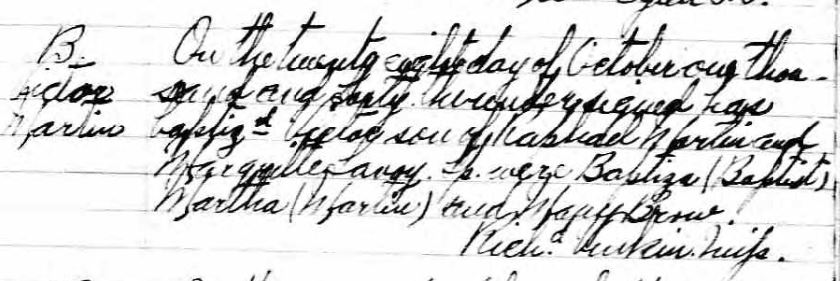 B.
Victor
Martin
On the twenty eight day of October one thou-
sand and forty the undersigned has
baptizd Victor son of Raphael Martin and
Marguerite Lavoy. Sp. were Batiza (Baptist)
Martha (Martin) and Mary Brow.
Richd